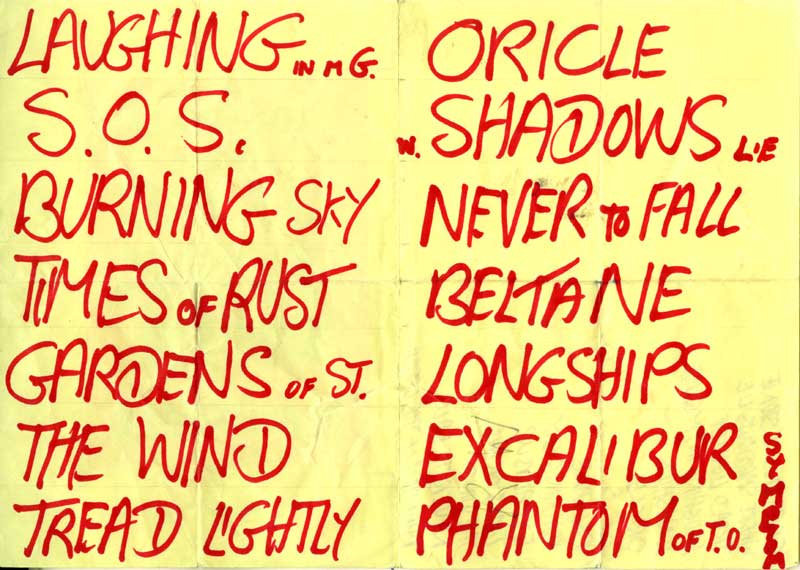 LAUGHING IN M G.
S.O.S.
BURNING SKY
TIMES OF RUST
GARDENS OF ST.
THE WIND
TREAD LIGHTLY
ORICLE
W. SHADOWS LIE
NEVER TO FALL
BELTANE
LONGSHIPS
EXCALIBUR
PHANTOM OF T.O.